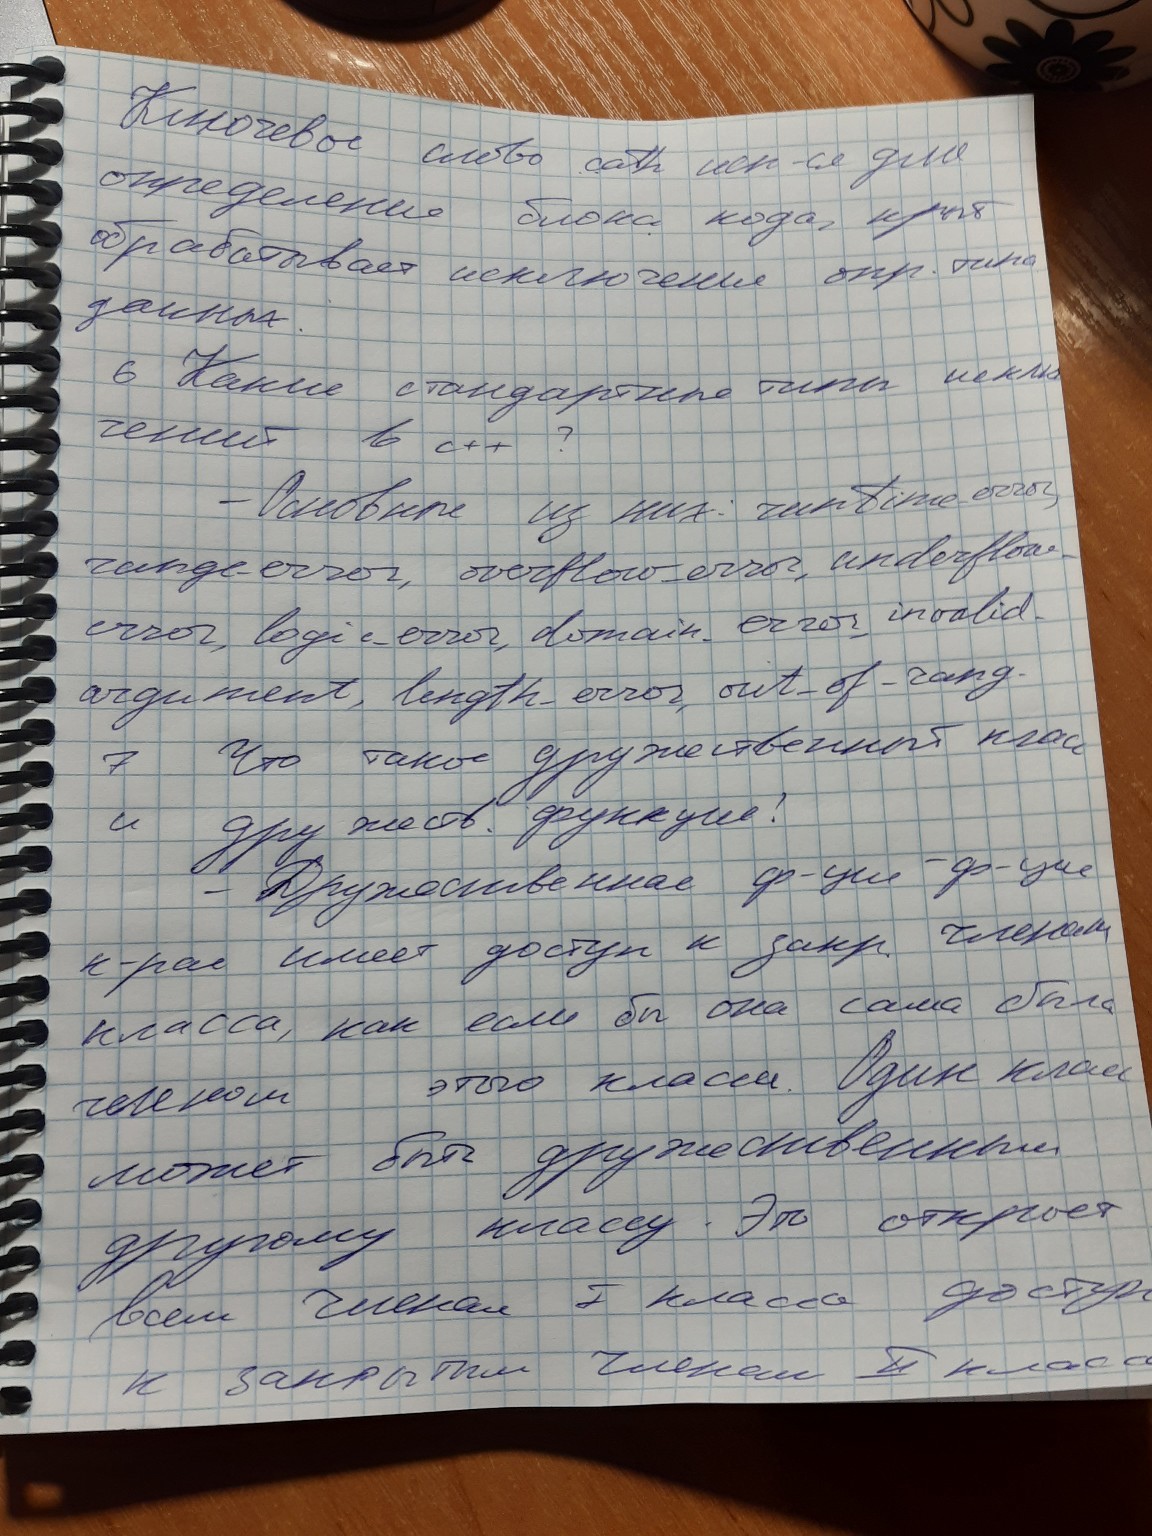 Ключевое слово cath исп-ся для
определения блока кода, крый
обрабатывает исключения опр. типа
данных.
6 Какие стандартные типы исклю
чений в c++ ?
- Основные из них: runtime error,
range-error, overflow-error, underflow-
error, logic-error, domain-error, invalid-
argument, length-error, out-of-rang-
7 Что такое дружественный класс
и дружеств. функция?
- Дружественная ф-ция - ф-ция
к-рая имеет доступ к закр. членам
класса, как если бы она сама была
членом этого класса. Один класс
может быть дружественным
другому классу. Это откроет
всем членам I класса доступ
к закрытым членам II класса